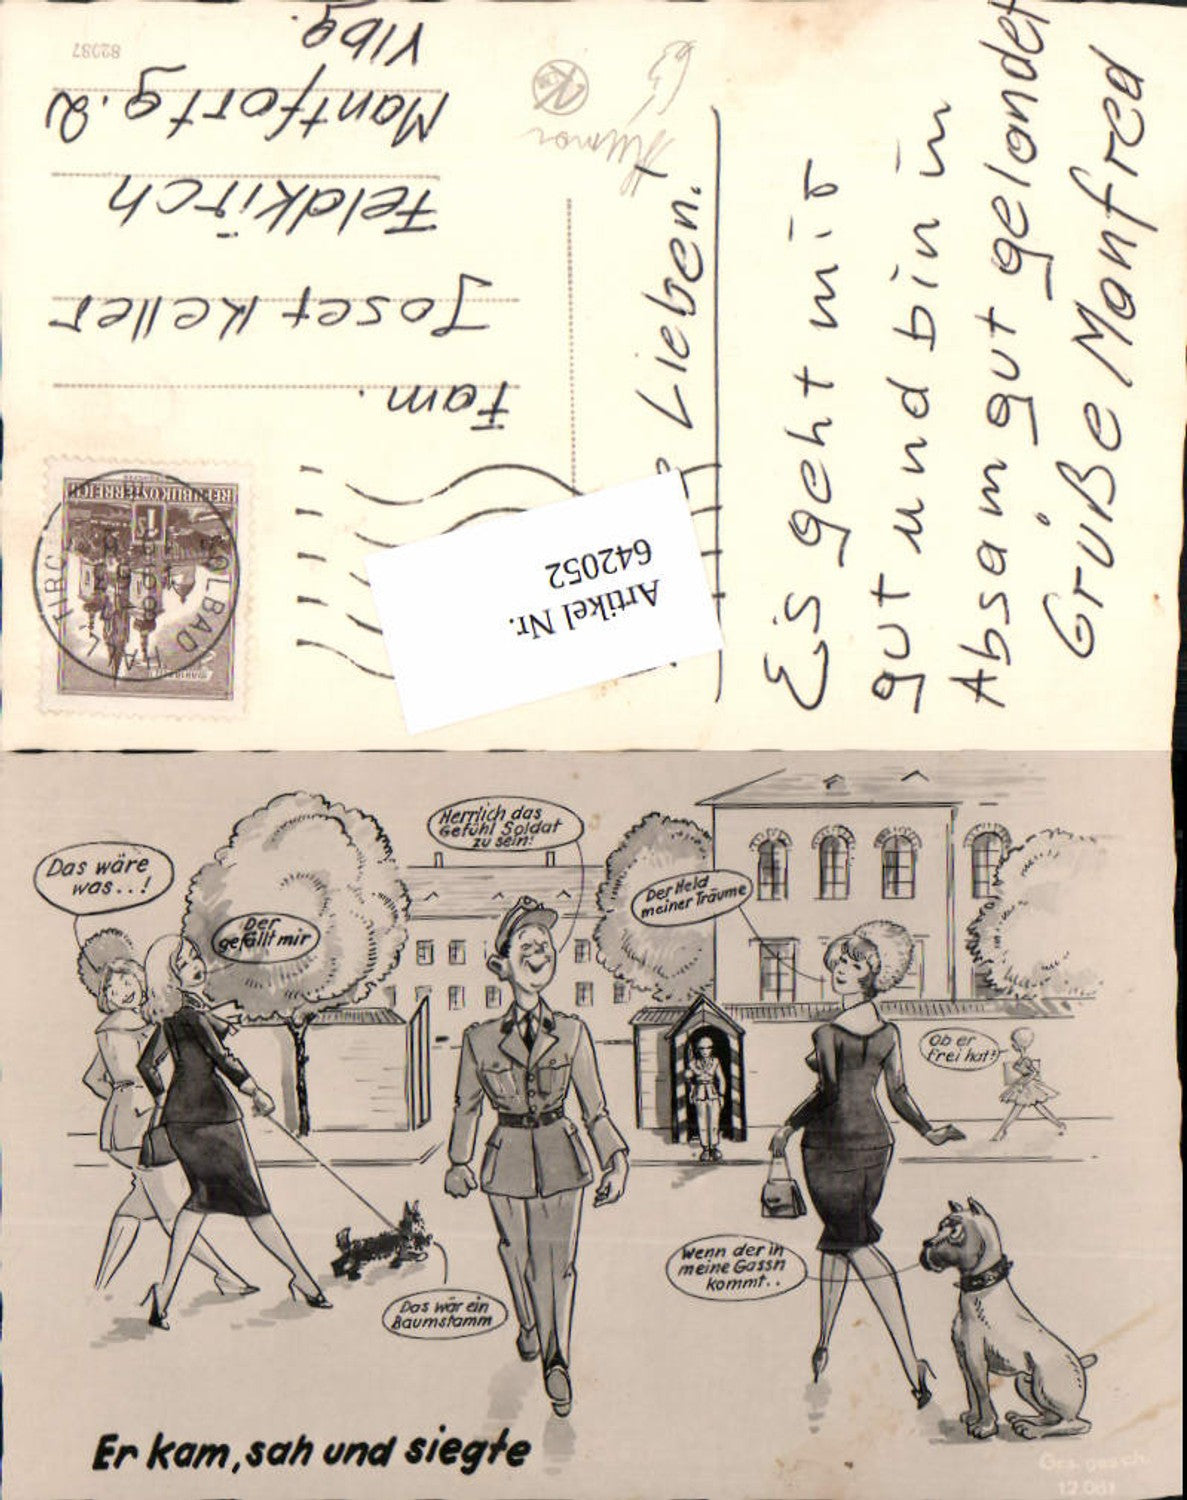 Fam.
Josef Keller
Feldkirch
Mantfortg. 2
Vlbg.
82087
Humor
REPUBLIK ÖSTERREICH
SOLBAD HALL
TIROL
Artikel Nr.
642052
Lieben!
Es geht mir
gut und bin in
Absam gut gelandet
Grüße Manfred
Das wäre
was..!
Der
gefällt mir
Herrlich das
Gefühl Soldat
zu sein!
Der Held
meiner Träume
Ob er
frei hat?
Das wär ein
Baumstamm
Wenn der in
meine Gassn
kommt..
Er kam, sah und siegte
Ges. gesch.
12.061